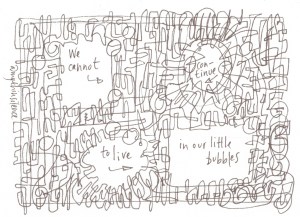 We
cannot
con-
tinue
to live
in our little
bubbles